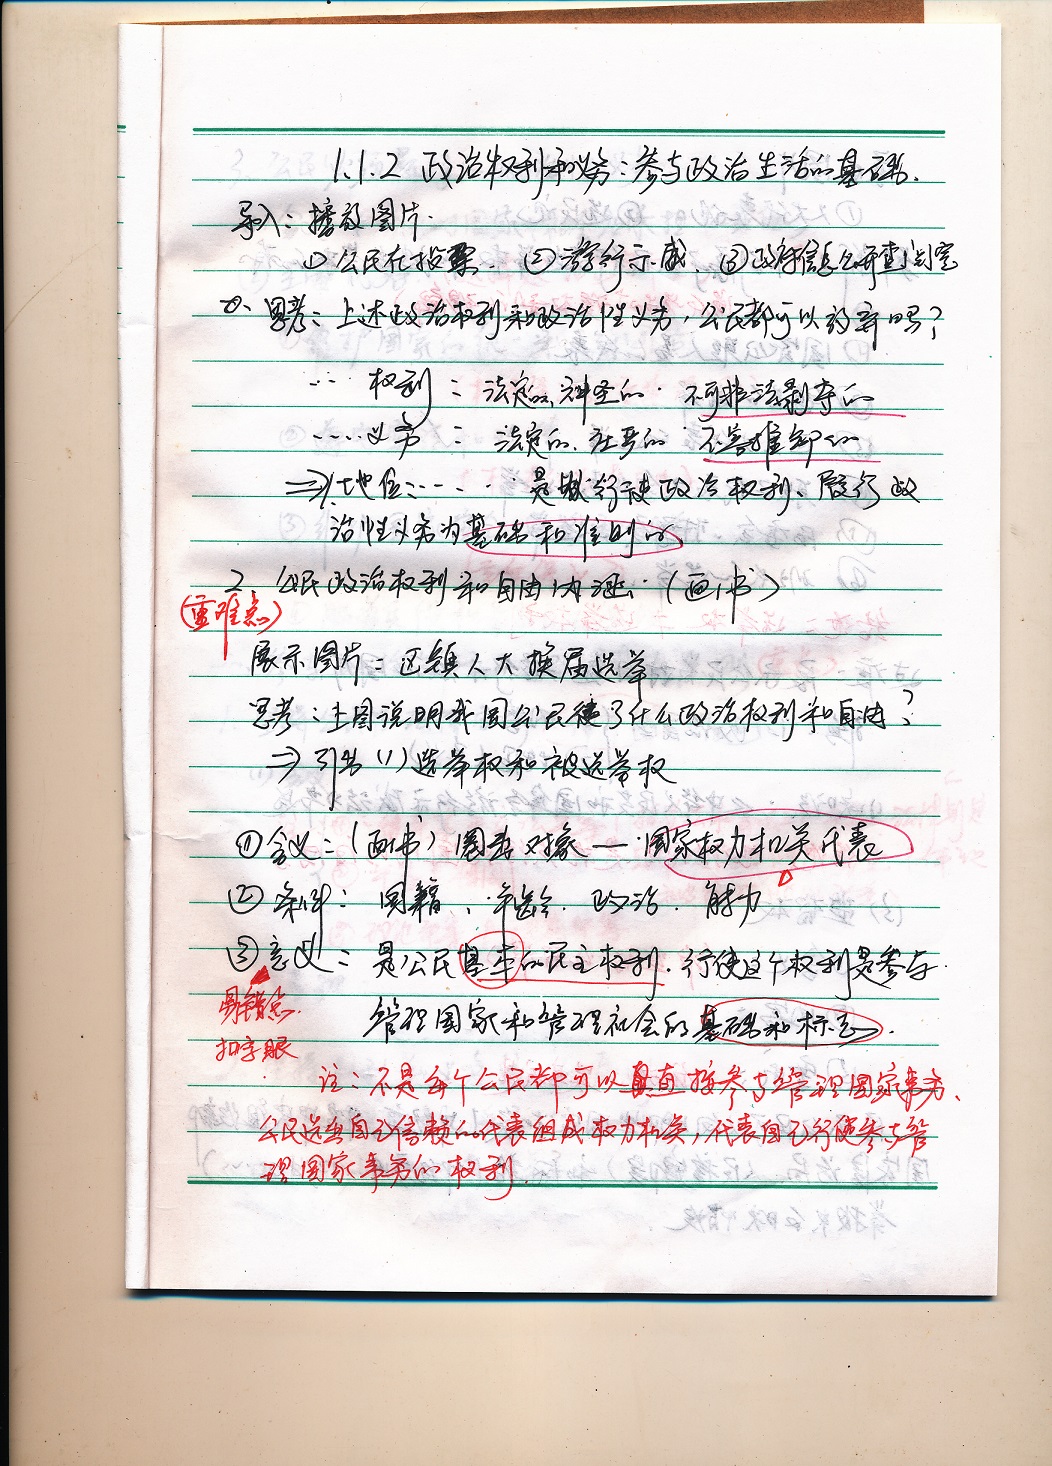 1.1.2 政治权利和义务:参与政治生活的基础.
导入: 播放图片.
① 公民在投票. ② 游行示威. ③ 政府信息公开查阅室
思考: 上述政治权利和政治性义务, 公民都可以放弃吗?
… 权利: 法定的, 神圣的. 不可非法剥夺的
…. 义务: 法定的. 庄严的 不容推卸的
⇒ 1. 地位: … 是行使政治权利、履行政
治性义务为基础和准则的
2、公民政治权利和自由内涵 (画书)
(重难点)
展示图片: 区镇人大换届选举
思考: 上图说明我国公民德了什么政治权利和自由?
⇒ 引出 (1) 选举权和被选举权
① 含义: (画书) 圈出对象 — 国家权力机关代表
② 条件: 国籍、年龄. 政治. 能力
③ 意义: 是公民基本的民主权利. 行使这个权利是参与
易错点.
管理国家和管理社会的基础和标志.
扣字眼
注: 不是每个公民都可以直接参与管理国家事务、
公民选出自己信赖的代表组成权力机关, 代表自己行使参与管
理国家事务的权利.